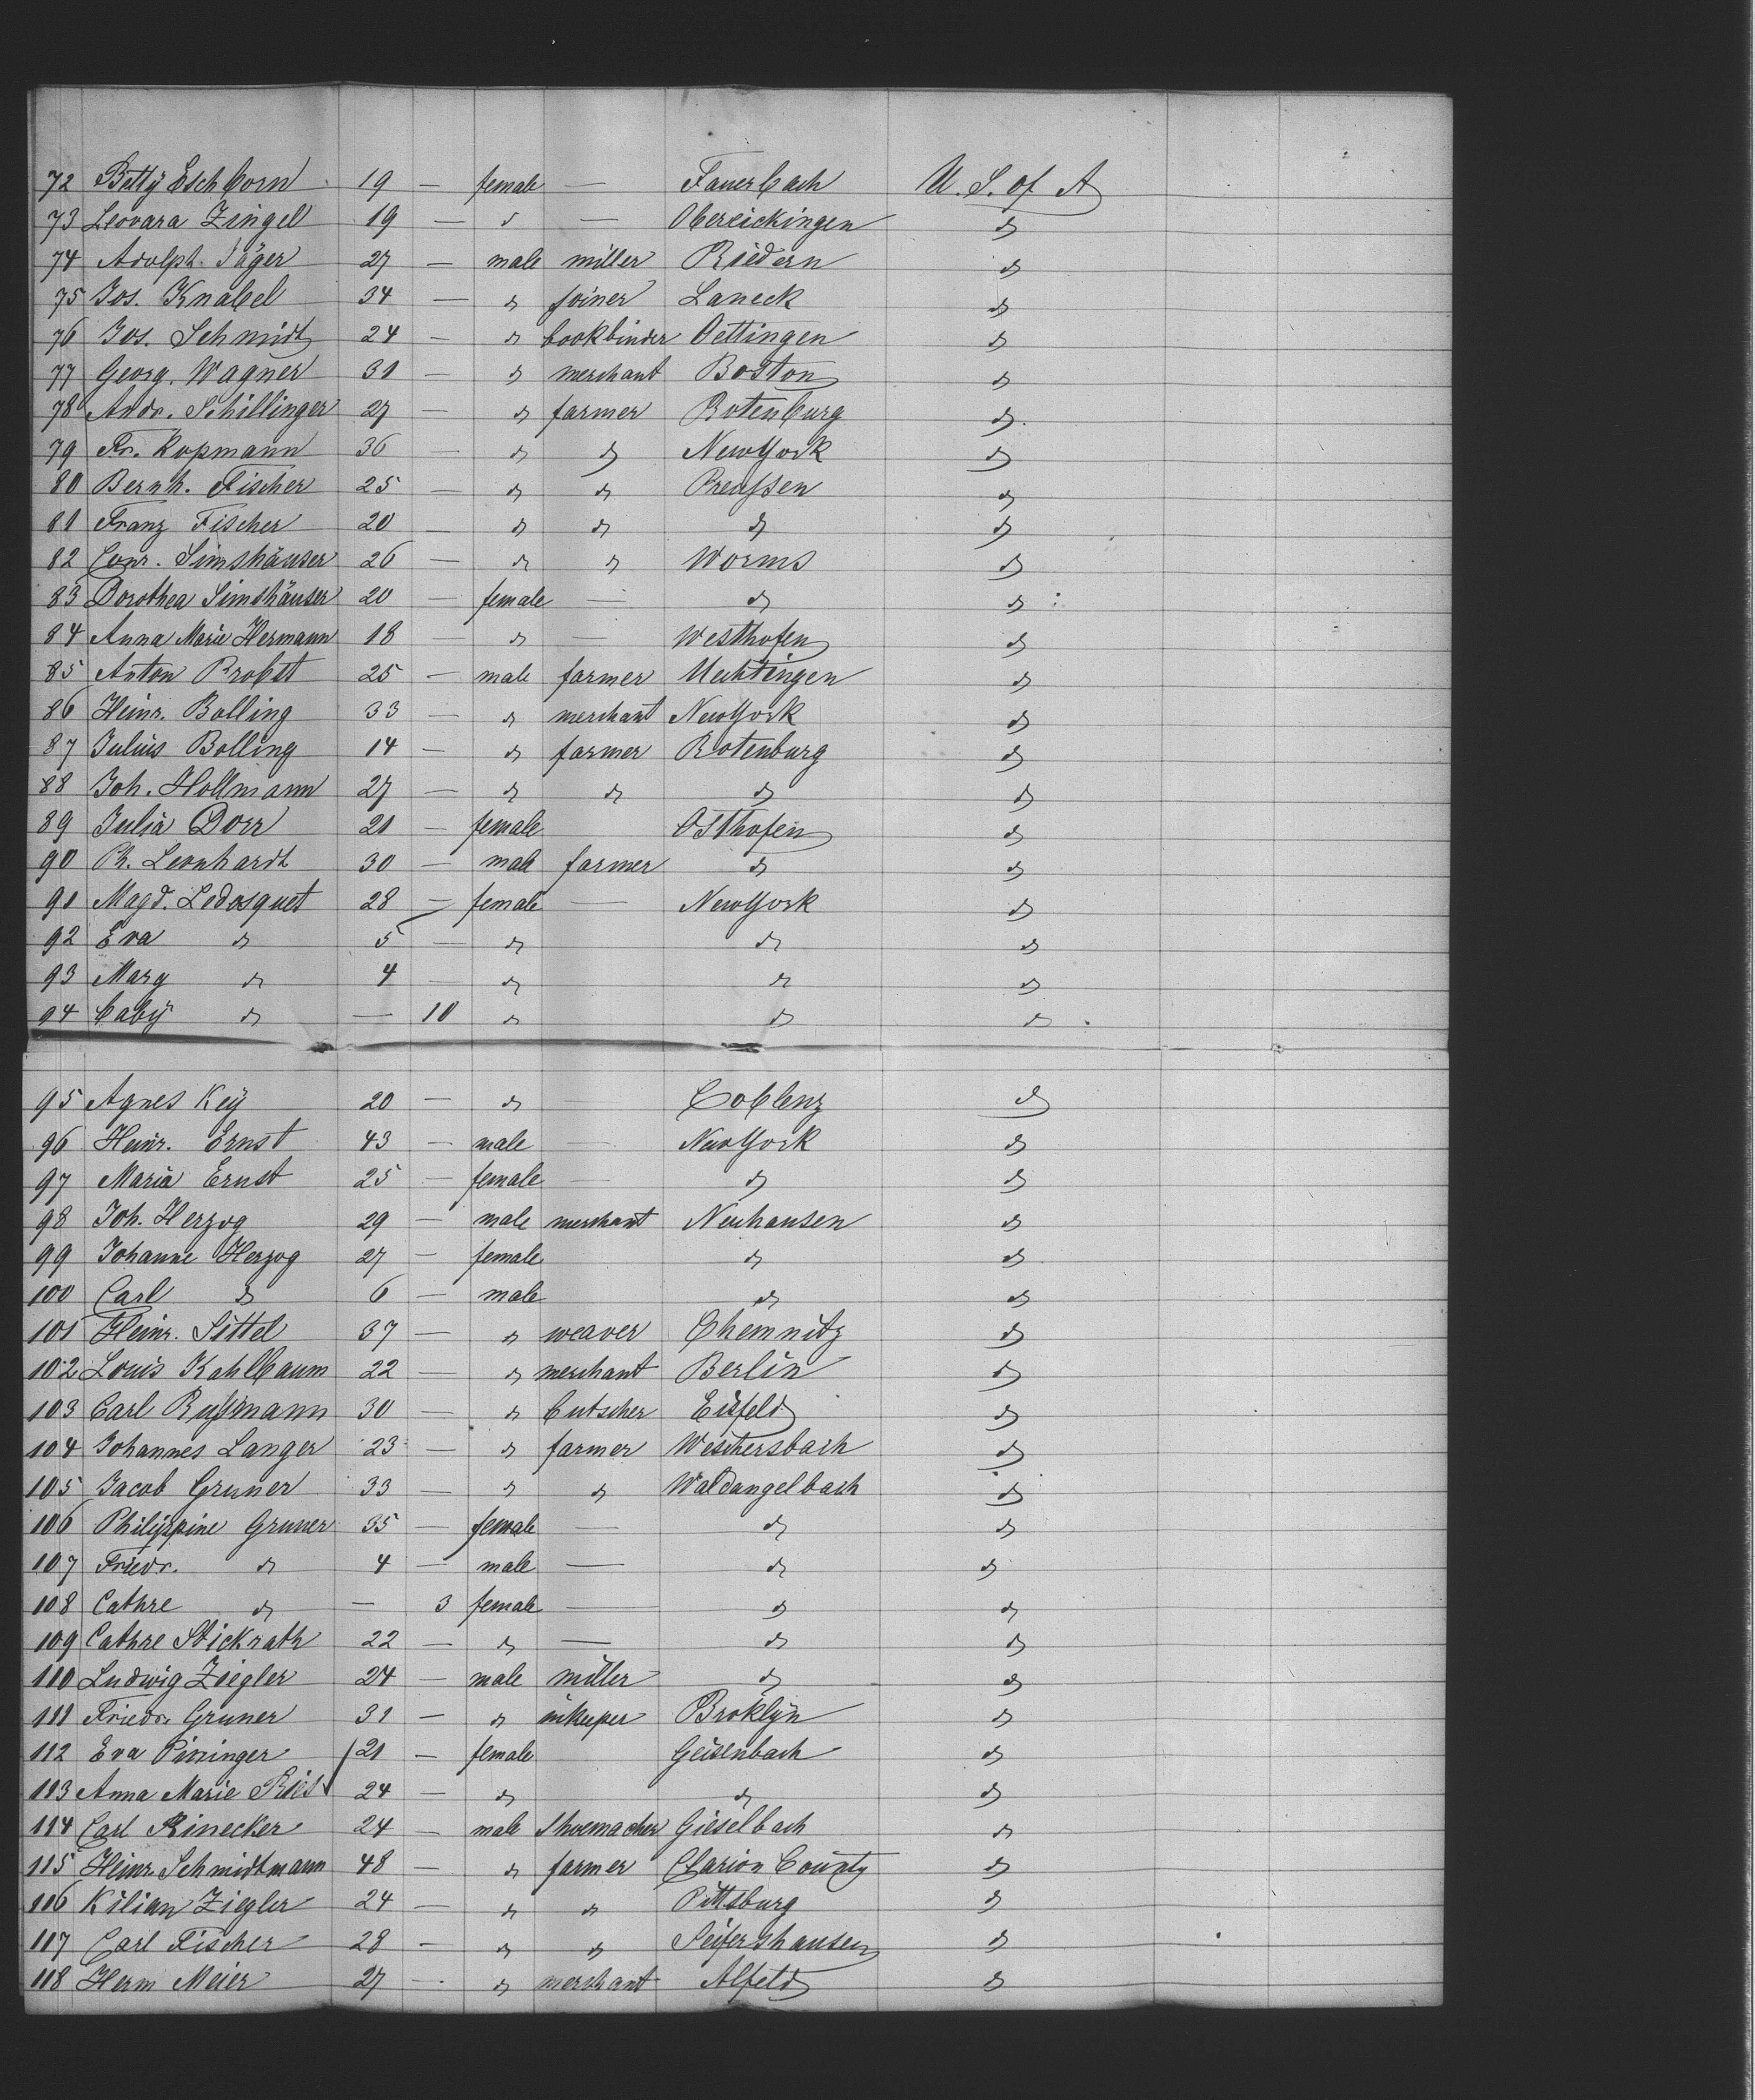 72 Betty Eschborn 19 — female — Fauerbach U. S. of A
73 Leovara Zingel 19 — " — Obereickingen "
74 Adolph. Jäger 27 — male miller Riedern "
75 Jos. Knabel 34 — " joiner Laneck "
76 Jos. Schmidt 24 — " bookbinder Oettingen "
77 Georg. Wagner 31 — " merchant Boston "
78 Andr. Schillinger 27 — " farmer Rotenburg "
79 Fr. Kopmann 36 — " " NewYork "
80 Bernh. Fischer 25 — " " Preußen "
81 Franz Fischer 20 — " " " "
82 Conr. Simshäuser 26 — " " Worms "
83 Dorothea Simshäuser 20 — female — " "
84 Anna Marie Hermann 18 — " — Westhofen "
85 Anton Probst 25 — male farmer "
86 Heinr. Bolling 33 — " merchant NewYork "
87 Julius Bolling 14 — " farmer Rotenburg "
88 Joh. Hollmann 27 — " " " "
89 Julia Dorr 21 — female Osthofen "
90 Ph. Leonhardt 30 — male farmer " "
91 Magd. Ledosquet 28 — female — NewYork "
92 Eva " 5 — " " "
93 Marg " 4 — " " "
94 baby " — 10 " " "
95 Agnes Key 20 — " — Coblenz "
96 Heinr. Ernst 43 — male — NewYork "
97 Maria Ernst 25 — female — " "
98 Joh. Herzog 29 — male merchant Neuhausen "
99 Johanne Herzog 27 — female " "
100 Carl " 6 — male " "
101 Heinr. Sittel 37 — " weaver Chemnitz "
102 Louis Kahlbaum 22 — " merchant Berlin "
103 Carl Rußmann 30 — " butscher Eisfeld "
104 Johannes Langer 23 — " farmer Weschersbach "
105 Jacob Gruner 33 — " " Waldangelbach "
106 Philippine Gruner 35 — female — " "
107 Friedr. " 4 — male — " "
108 Cathre " — 3 female — " "
109 Cathre Stickrath 22 — " — " "
110 Ludwig Ziegler 24 — male miller " "
111 Friedr. Gruner 31 — " inkeeper Broklyn "
112 Eva 21 — female Geisenbach "
113 Anna Marie Ries 24 — " " "
114 Carl Rinecker 24 — male shuemacher Gieselbach "
115 Heinr. Schmidtmann 48 — " farmer Clarion County "
116 Kilian Ziegler 24 — " " Pittsburg "
117 Carl Fischer 28 — " " Seifershausen "
118 Herm Meier 27 — " merchant Alfeld "